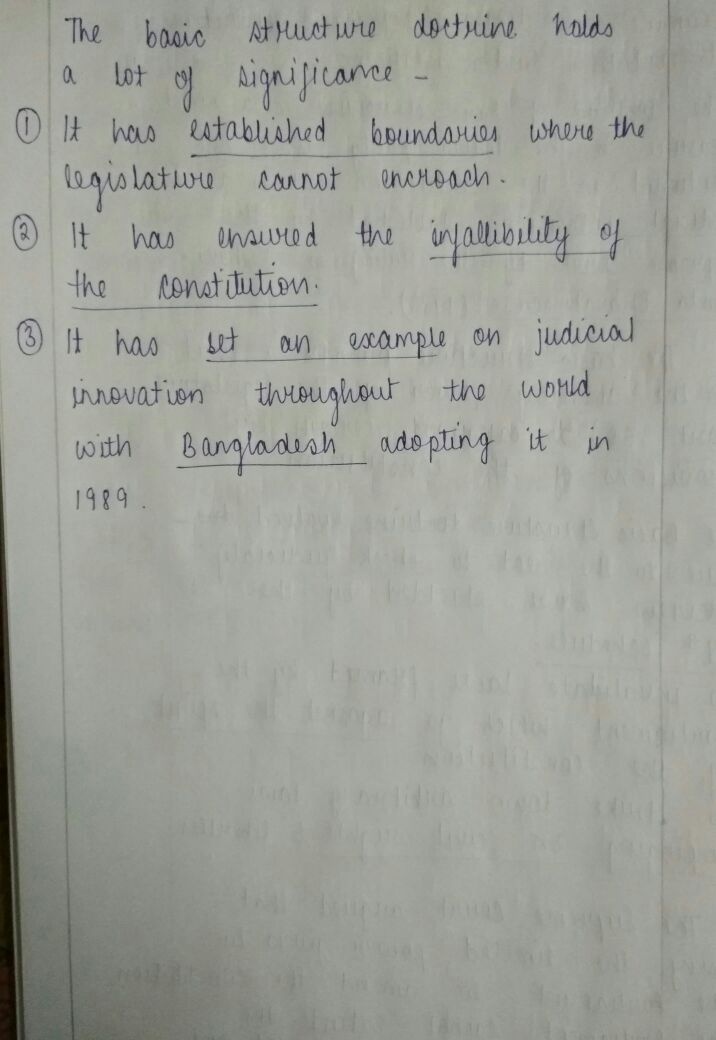 The basic structure doctrine holds
a lot of significance -
① It has established boundaries where the
legislature cannot encroach.
② It has ensured the infallibility of
the constitution.
③ It has set an example on judicial
innovation throughout the world
with Bangladesh adopting it in
1989.